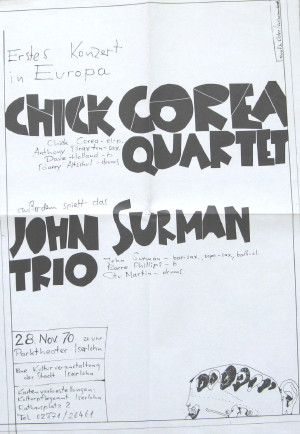 Erstes Konzert
in Europa
CHICK COREA
QUARTET
Chick Corea - el.p.
Anthony Braxton - sax.
Dave Holland - b
Barry Altschul - drums
außerdem spielt das
JOHN SURMAN
TRIO
John Surman - bar-sax, sopr-sax, basscl.
Barre Phillips - b
Stu Martin - drums
28. Nov. 70
Parktheater Iserlohn
Eine Kulturveranstaltung
der Stadt Iserlohn
Kartenvorbestellungen:
Kulturpflegeamt Iserlohn
Rathausplatz 2
Tel. 02371/